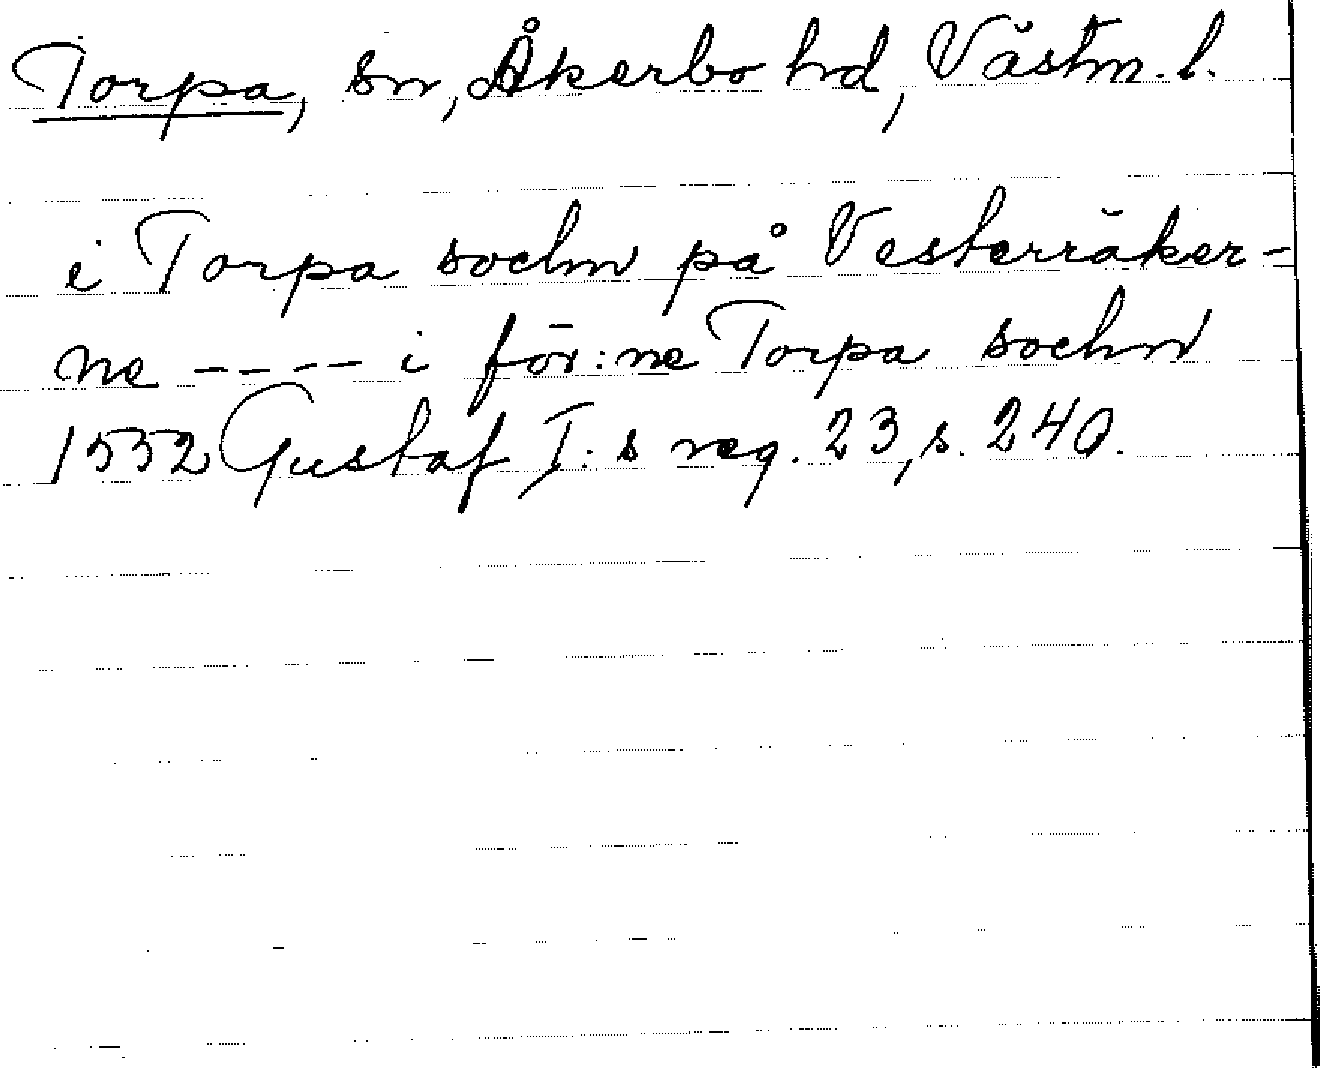 Torpa, sn, Åkerbo hd, Västm. l.
i Torpa sochn på Vesterråker-
ne ---- i för:ne Torpa sochn
1552 Gustaf I:s reg. 23, s. 240.